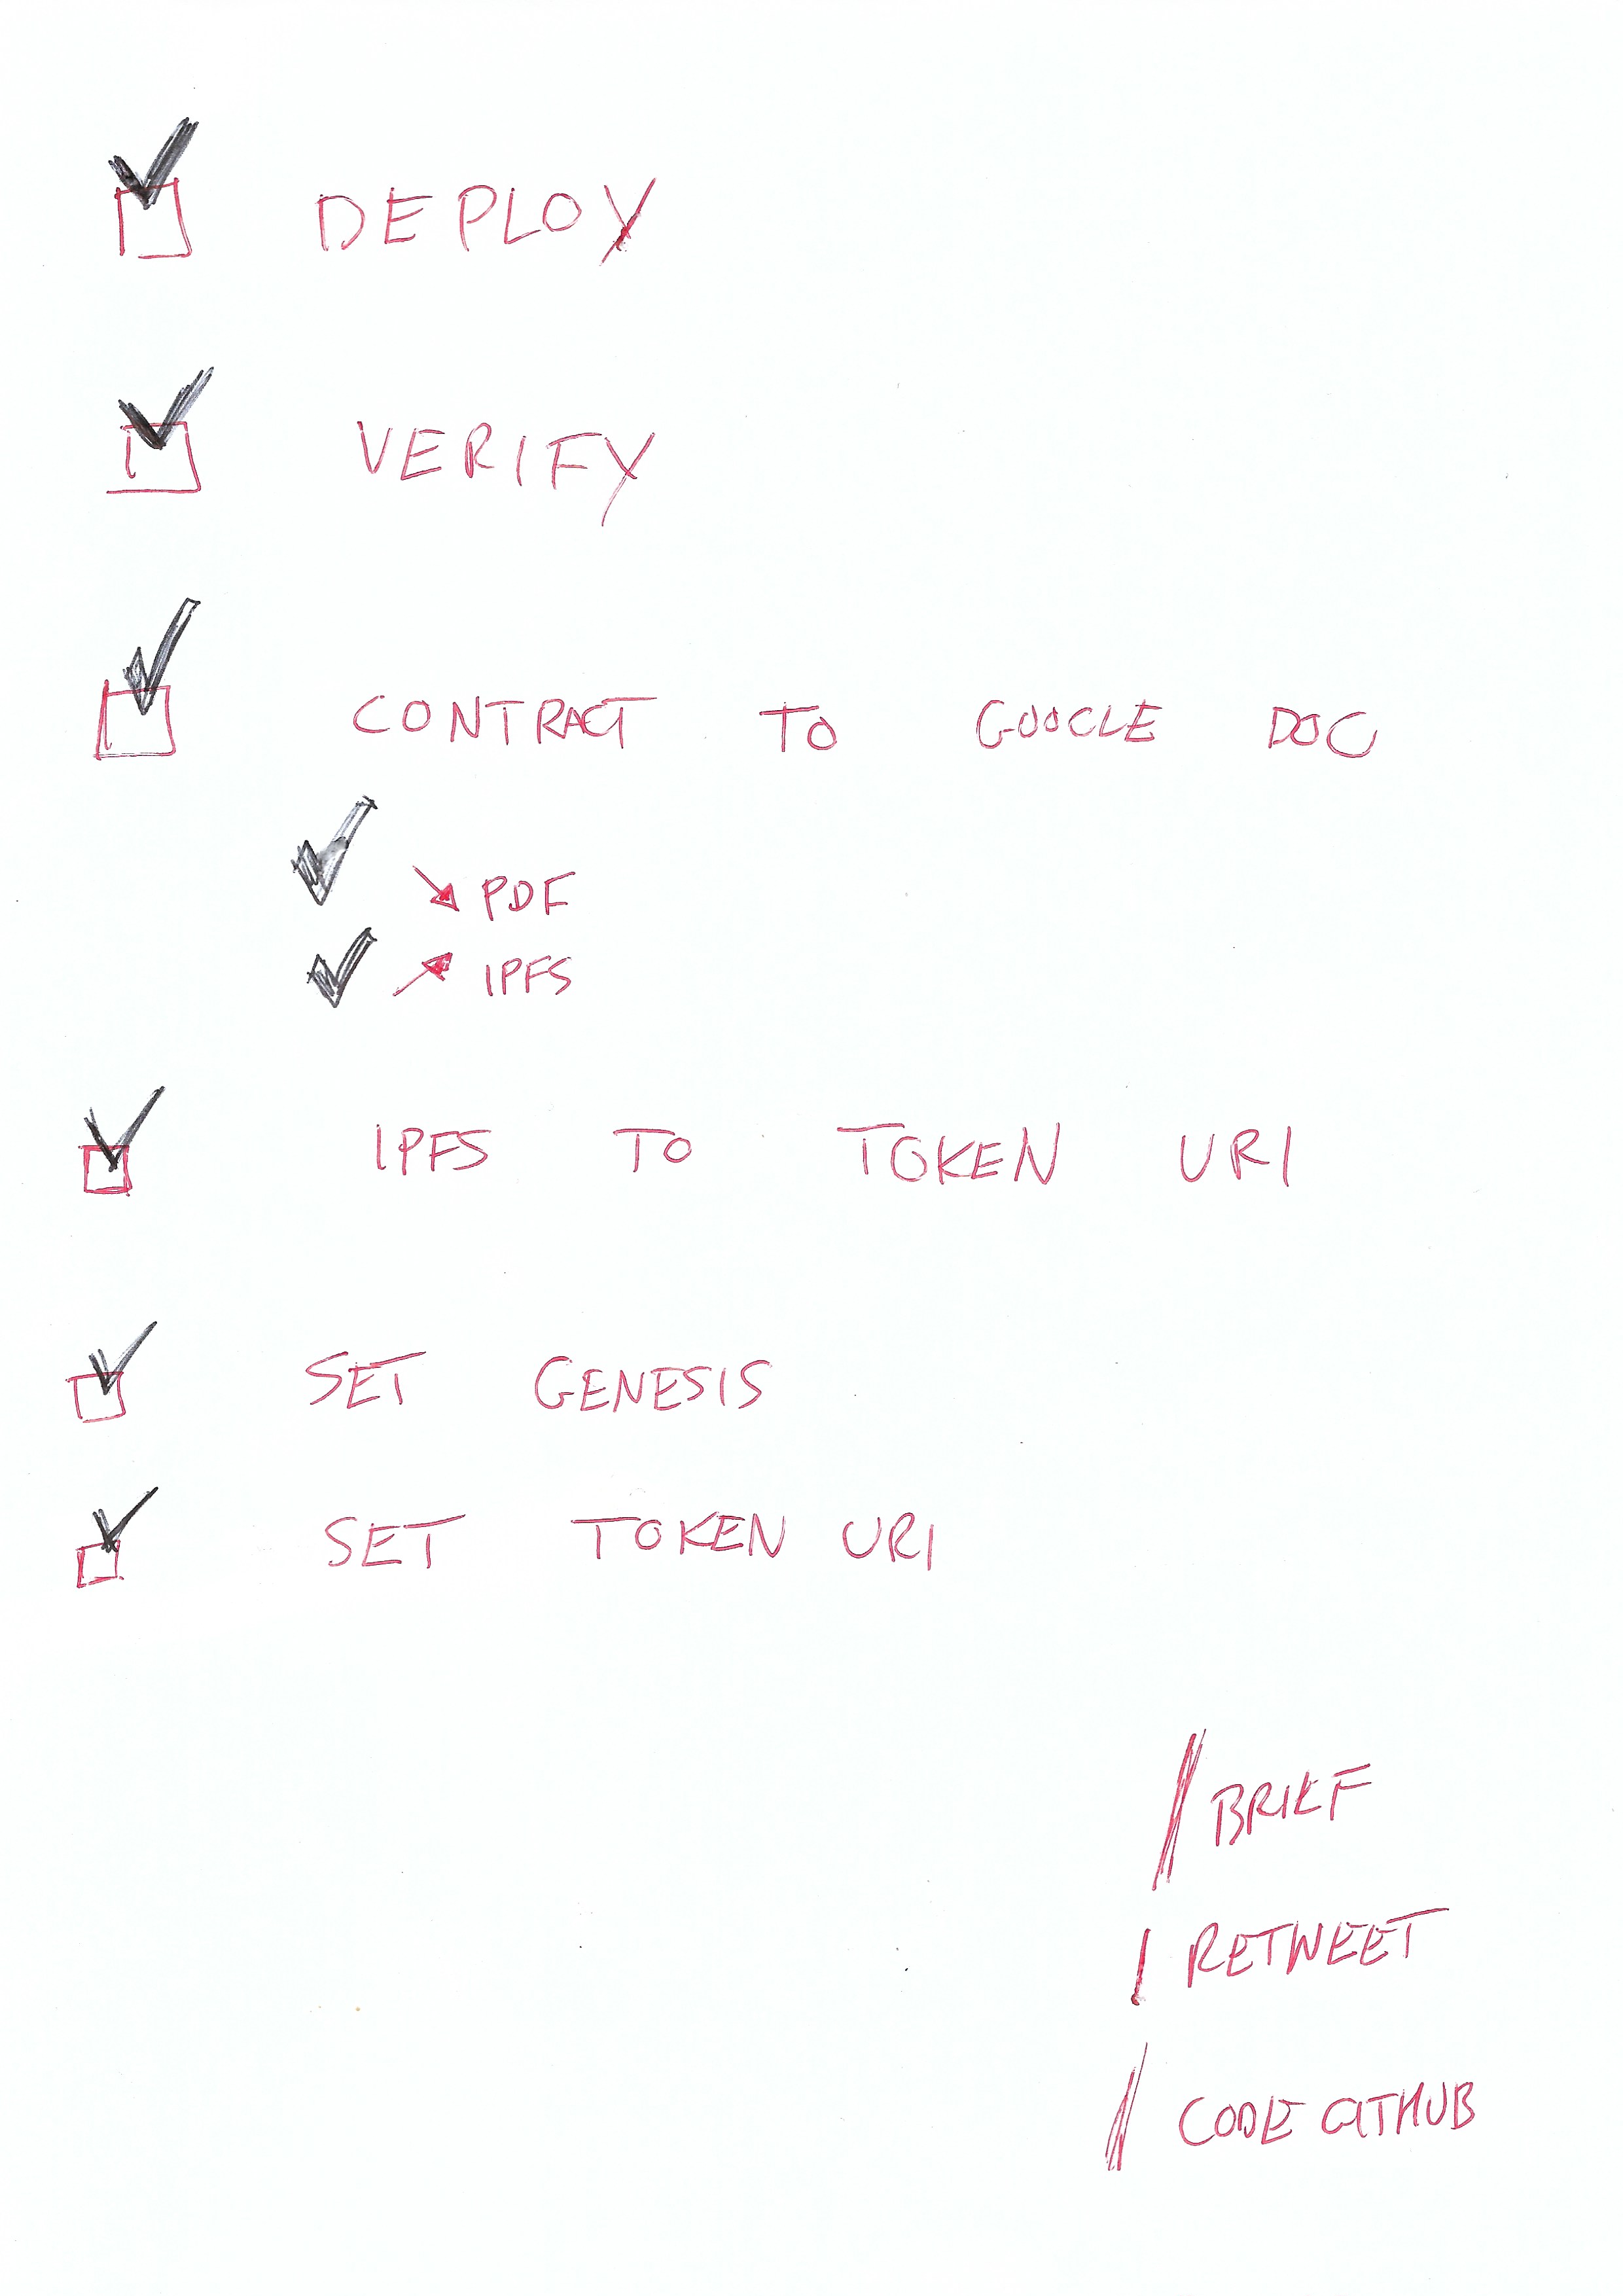 DEPLOY
VERIFY
CONTRACT TO GOOGLE DOC
PDF
IPFS
IPFS TO TOKEN URI
SET GENESIS
SET TOKEN URI
BRIEF
RETWEET
CODE GITHUB